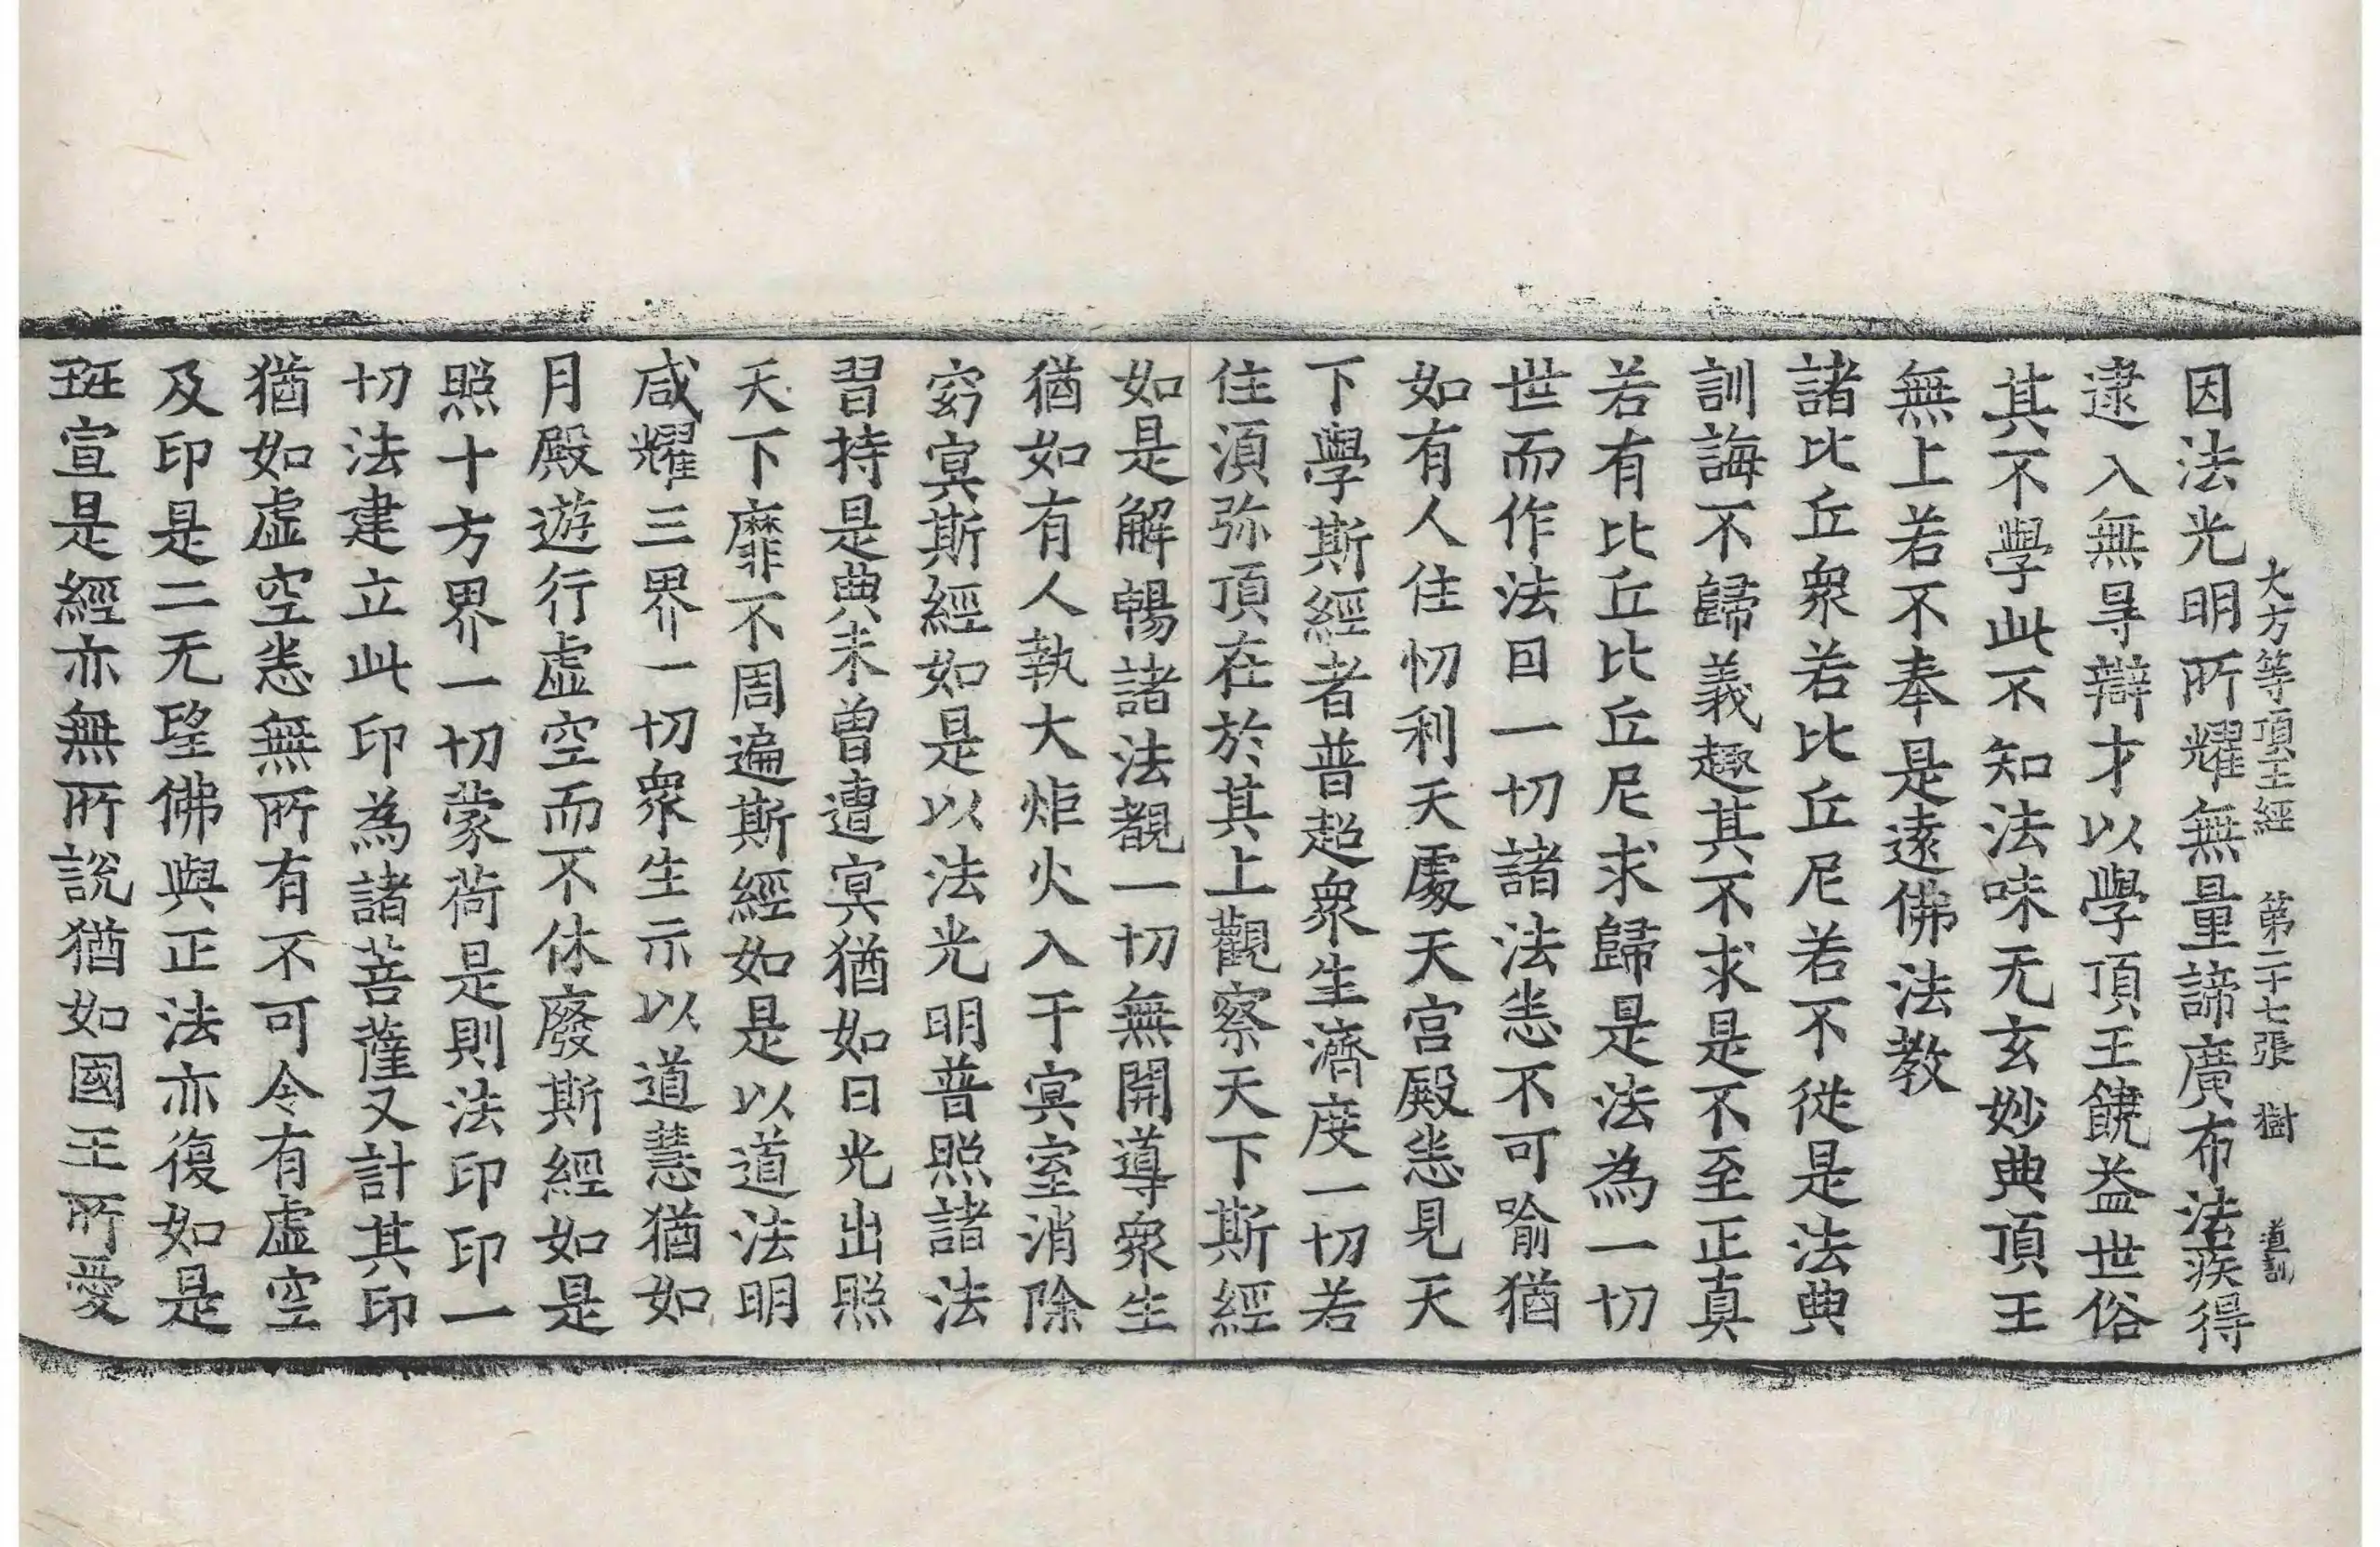 大方等頂王經 第二十七張 樹 道訓
因法光明所耀無量諦廣布法疾得
逮入無㝵辯才以學頂王饒益世俗
其不學此不知法味无玄妙典頂王
無上若不奉是遠佛法教
諸比丘衆若比丘尼若不從是法典
訓誨不歸義趣其不求是不至正真
若有比丘比丘尼求歸是法為一切
世而作法回一切諸法恙不可喻猶
如有人住忉利天處天宫殿恙見天
下學斯經者普超衆生濟度一切若
住湏弥頂在於其上觀察天下斯經
如是解暢諸法覩一切無開導衆生
猶如有人執大炬火入于㝠室消除
窮㝠斯經如是以法光明普照諸法
習持是典未曾遭㝠猶如日光出照
天下靡不周遍斯經如是以道法明
咸耀三界一切衆生示以道慧猶如
月殿遊行虚空而不休廢斯經如是
照十方界一切蒙荷是則法印印一
切法建立此印為諸菩薩又計其印
猶如虚空恙無所有不可令有虚空
及印是二无望佛與正法亦復如是
班宣是經亦無所說猶如國王所愛